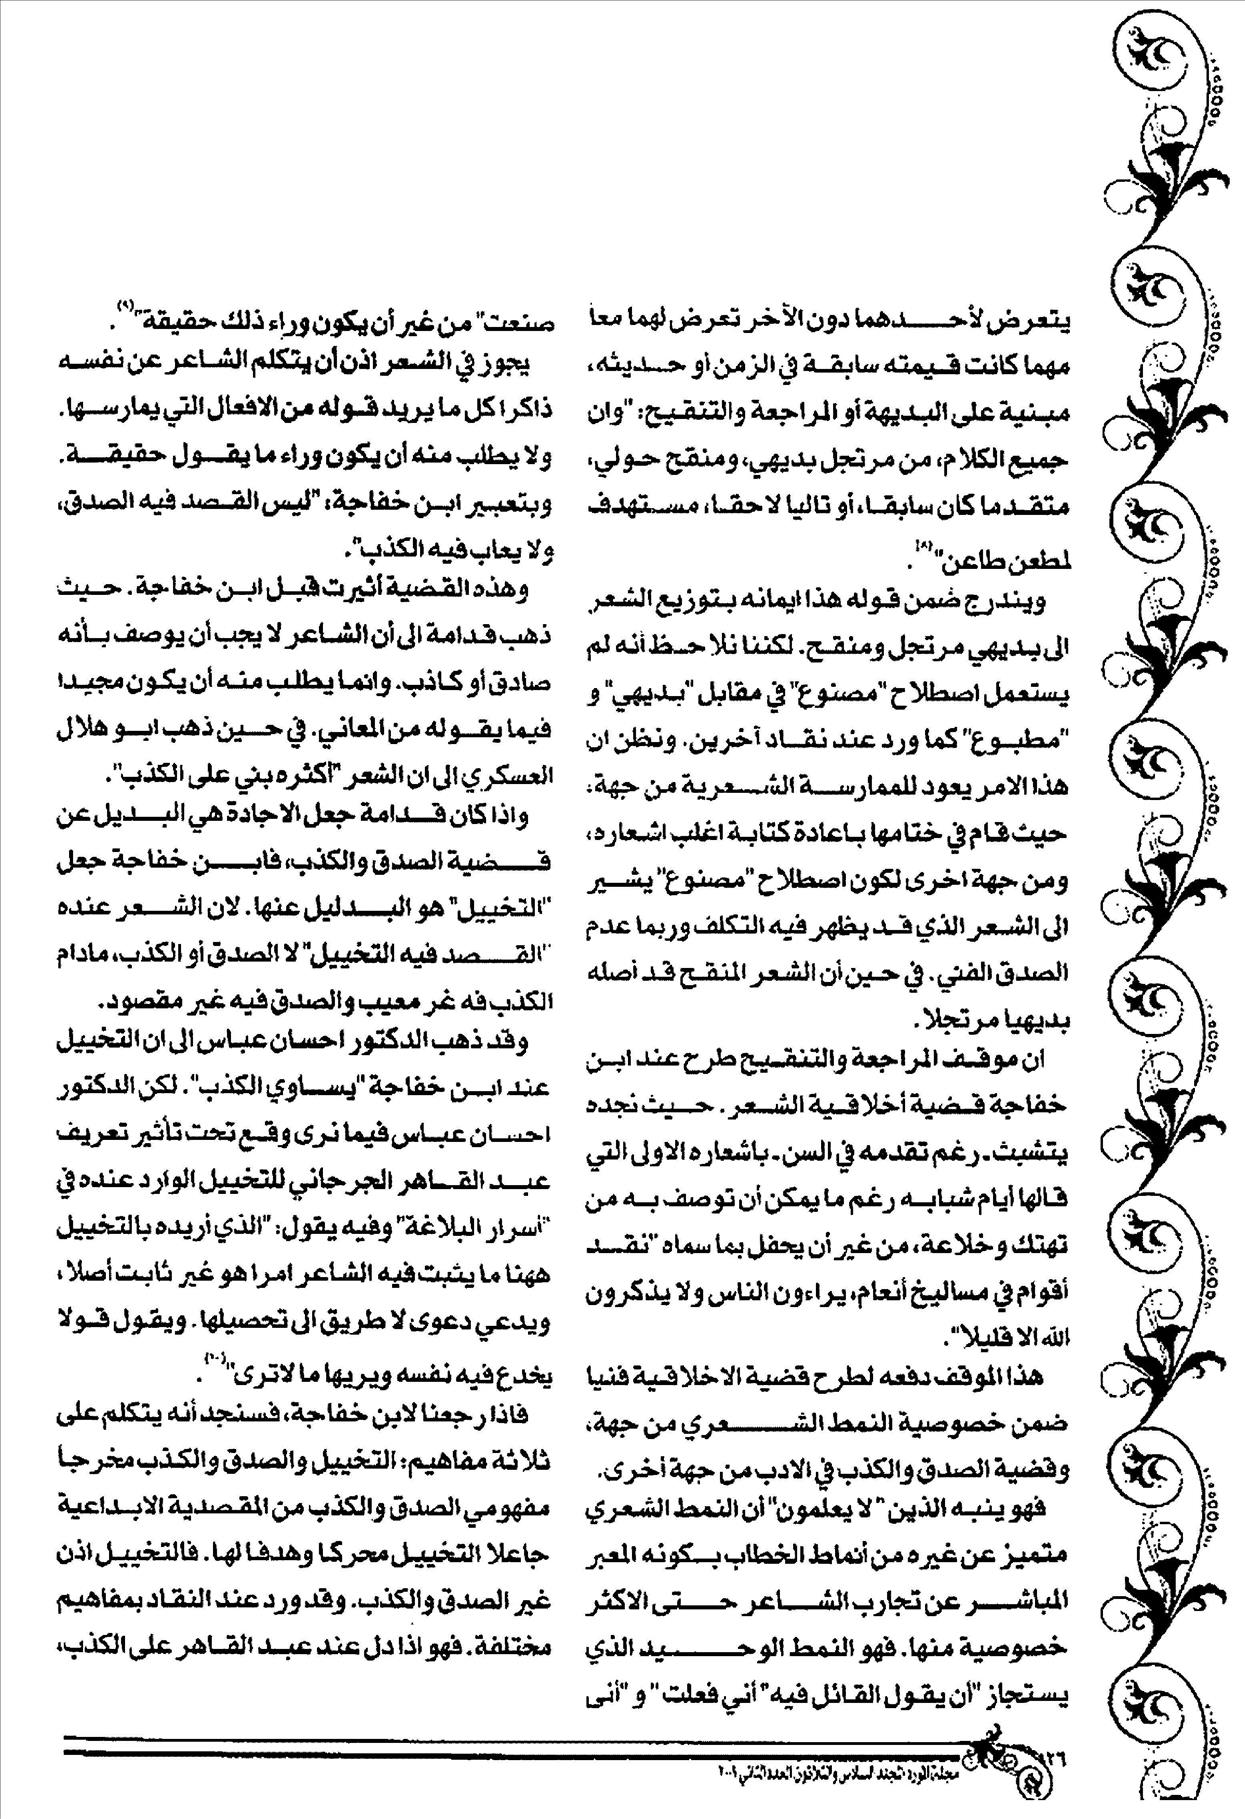 يتعرض لأحدهما دون الآخر تعرض لهما معا
مهما كانت قيمته سابقة في الزمن أو حديثه،
مبنية على البديهة أو المراجعة والتنقيح: "وان
جميع الكلام، من مرتجل بديهي، ومنقح حولي،
متقدما كان سابقا، أو تاليا لاحقا، مستهدف
لمطعن طاعن"(٨).
ويندرج ضمن قوله هذا ايمانه بتوزيع الشعر
الى بديهي مرتجل ومنقح. لكننا نلاحظ أنه لم
يستعمل اصطلاح "مصنوع" في مقابل "بديهي" و
"مطبوع" كما ورد عند نقاد آخرين. ونظن ان
هذا الامر يعود للممارسة الشعرية من جهة،
حيث قام في ختامها باعادة كتابة اغلب اشعاره،
ومن جهة اخرى لكون اصطلاح "مصنوع" يشير
الى الشعر الذي قد يظهر فيه التكلف وربما عدم
الصدق الفني. في حين أن الشعر المنقح قد أصله
بديهيا مرتجلا.
ان موقف المراجعة والتنقيح طرح عند ابن
خفاجة قضية أخلاقية الشعر. حيث نجده
يتشبث ـ رغم تقدمه في السن ـ باشعاره الاولى التي
قالها أيام شبابه رغم ما يمكن أن توصف به من
تهتك وخلاعة، من غير أن يحفل بما سماه "نقد
أقوام في مساليخ أنعام، يراءون الناس ولا يذكرون
الله الا قليلا".
هذا الموقف دفعه لطرح قضية الاخلاقية فنيا
ضمن خصوصية النمط الشعري من جهة،
وقضية الصدق والكذب في الادب من جهة أخرى.
فهو ينبه الذين "لا يعلمون" أن النمط الشعري
متميز عن غيره من أنماط الخطاب بكونه المعبر
المباشر عن تجارب الشاعر حتى الاكثر
خصوصية منها. فهو النمط الوحيد الذي
يستجاز "أن يقول القائل فيه" أني فعلت" و "أنى
صنعت" من غير أن يكون وراء ذلك حقيقة"(٩).
يجوز في الشعر اذن أن يتكلم الشاعر عن نفسه
ذاكرا كل ما يريد قوله من الافعال التي يمارسها.
ولا يطلب منه أن يكون وراء ما يقول حقيقة.
وبتعبير ابن خفاجة: "ليس القصد فيه الصدق،
ولا يعاب فيه الكذب".
وهذه القضية أثيرت قبل ابن خفاجة. حيث
ذهب قدامة الى أن الشاعر لا يجب أن يوصف بأنه
صادق أو كاذب. وانما يطلب منه أن يكون مجيدا
فيما يقوله من المعاني. في حين ذهب ابو هلال
العسكري الى ان الشعر "أكثره بني على الكذب".
واذا كان قدامة جعل الاجادة هي البديل عن
قضية الصدق والكذب، فابن خفاجة جعل
"التخييل" هو البدليل عنها. لان الشعر عنده
"القصد فيه التخييل" لا الصدق أو الكذب، مادام
الكذب فه غر معيب والصدق فيه غير مقصود.
وقد ذهب الدكتور احسان عباس الى ان التخييل
عند ابن خفاجة "يساوي الكذب". لكن الدكتور
احسان عباس فيما نرى وقع تحت تأثير تعريف
عبد القاهر الجرجاني للتخييل الوارد عنده في
"أسرار البلاغة" وفيه يقول: "الذي أريده بالتخييل
ههنا ما يثبت فيه الشاعر امرا هو غير ثابت أصلا،
ويدعي دعوى لا طريق الى تحصيلها. ويقول قولا
يخدع فيه نفسه ويريها ما لا ترى"(١٠).
فاذا رجعنا لابن خفاجة، فسنجد أنه يتكلم على
ثلاثة مفاهيم: التخييل والصدق والكذب مخرجا
مفهومي الصدق والكذب من المقصدية الابداعية
جاعلا التخييل محركا وهدفا لها. فالتخييل اذن
غير الصدق والكذب. وقد ورد عند النقاد بمفاهيم
مختلفة. فهو اذا دل عند عبد القاهر على الكذب،
١٢٦
مجلة المورد المجلد السادس والثلاثون العدد الثاني ٢٠٠٩